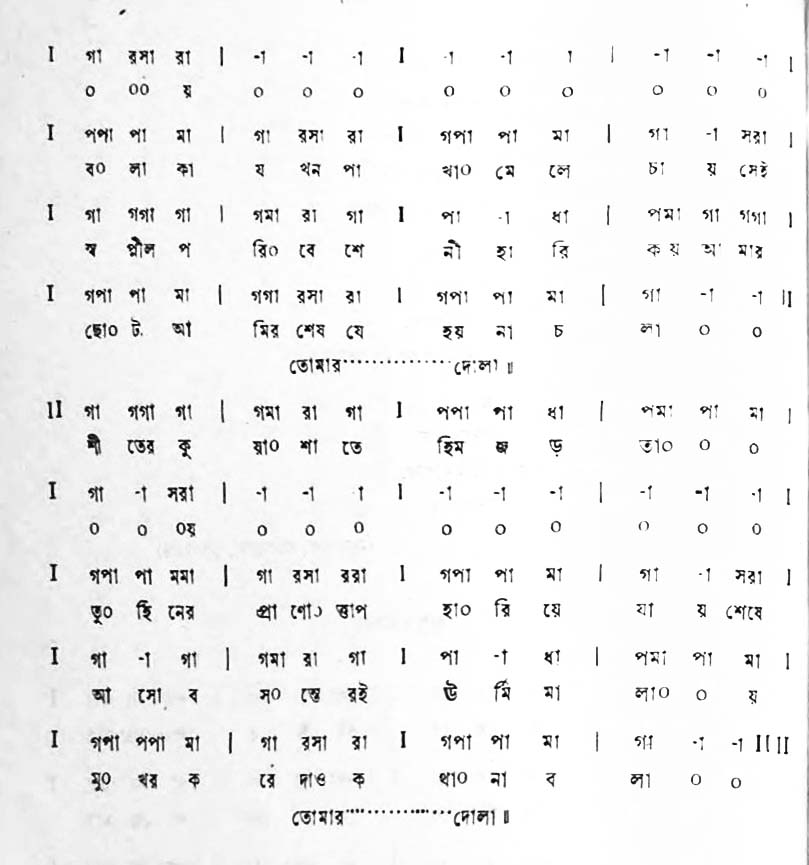 I গা রসা রা | -া -া -া I -া -া া | -া -া -া I
০ ০০ য় ০ ০ ০ ০ ০ ০ ০ ০ ০
I পপা পা মা | গা রসা রা I গপা পা মা | গা -া সরা I
ব০ লা কা য খন পা খা০ মে লে চা য় সেই
I গা গগা গা | গমা রা গা I পা -া ধা | পমা গা গগা I
স্ব প্নীল প রি০ বে শে নী হা রি কয় আ মার
I গপা পা মা | গগা রসা রা I গপা পা মা | গা -া -া II
ছো০ ট. আ মির শেষ যে হয় না চ লা ০ ০
তোমার··············দোলা॥
II গা গগা গা | গমা রা গা I পপা পা ধা | পমা পা মা I
শী তের কু য়া০ শা তে হিম জ ড় তা০ ০ ০
I গা -া সরা | -া -া া I -া -া -া | -া -া -া I
০ ০ ০য় ০ ০ ০ ০ ০ ০ ০ ০ ০
I গপা পা মমা | গা রসা ররা I গপা পা মা | গা -া সরা I
তু০ হি নের প্রা ণো০ ত্তাপ হা০ রি য়ে যা য় শেষে
I গা -া গা | গমা রা গা I পা -া ধা | পমা পা মা I
আ সো ব স০ ন্তে রই ঊ র্মি মা লা০ ০ য়
I গপা পপা মা | গা রসা রা I গপা পা মা | গা -া -া II II
মু০ খর ক রে দাও ক থা০ না ব লা ০ ০
তোমার··············দোলা॥